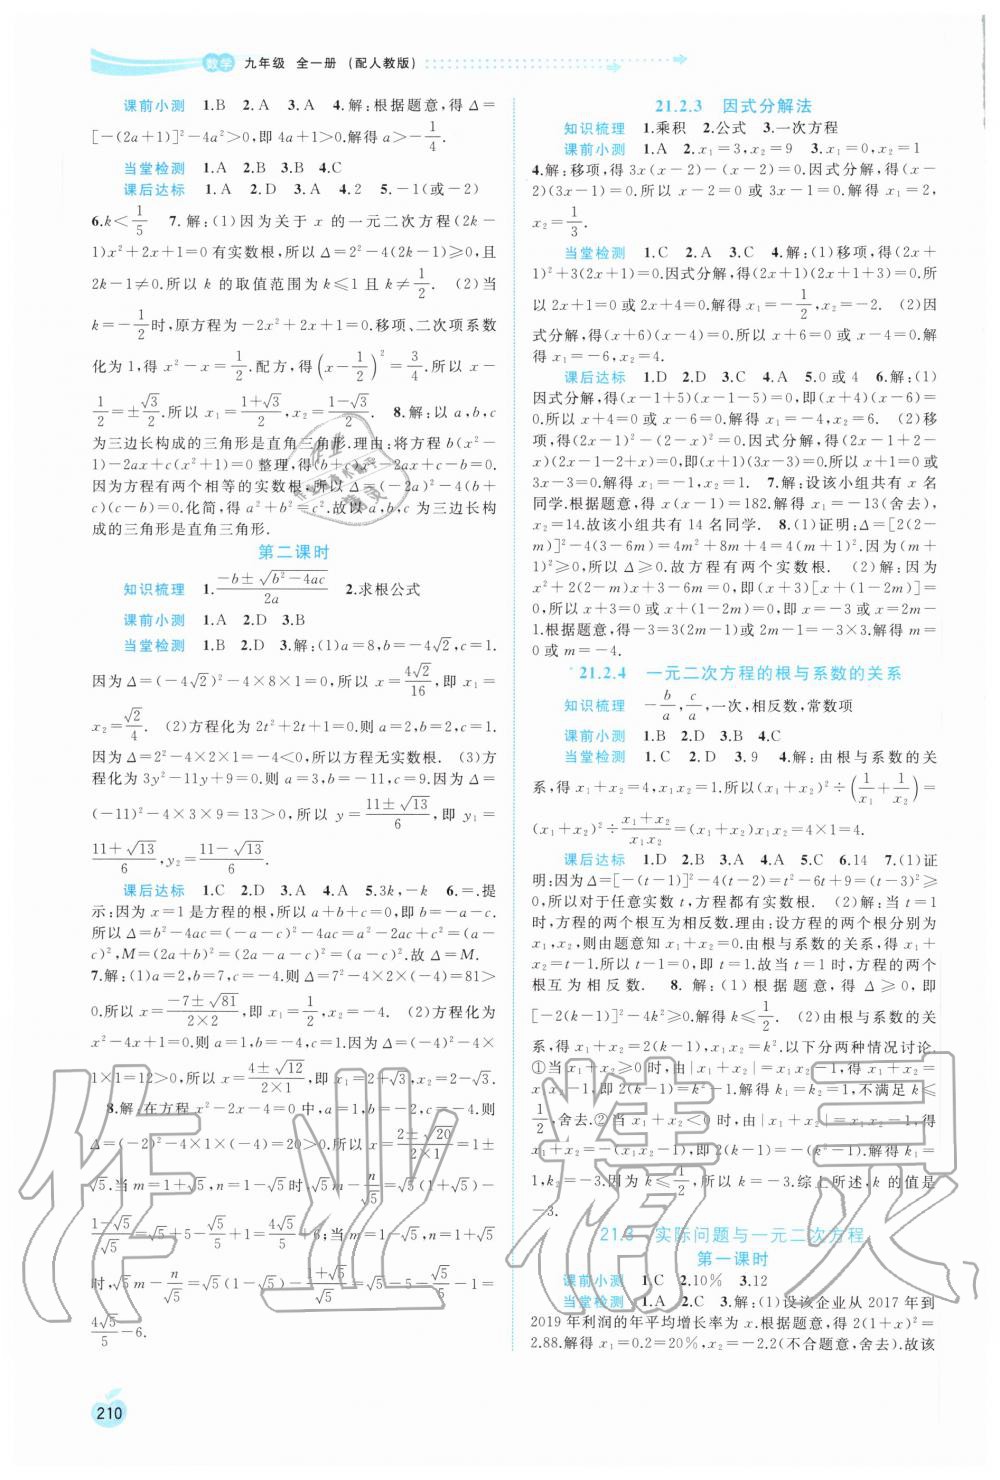 数学 九年级 全一册 (配人教版)
课前小测 1.B 2.A 3.A 4.解:根据题意,得 Δ=
[-(2a+1)]²-4a²>0,即 4a+1>0.解得 a>-1/4.
当堂检测 1.A 2.B 3.B 4.C
课后达标 1.A 2.D 3.A 4.2 5.-1(或-2)
6.k<1/5 7.解:(1)因为关于 x 的一元二次方程(2k-
1)x²+2x+1=0 有实数根,所以 Δ=2²-4(2k-1)≥0,且
2k-1≠0.所以 k 的取值范围为 k≤1 且 k≠1/2. (2)当
k=-1/2时,原方程为-2x²+2x+1=0.移项、二次项系数
化为 1,得 x²-x=1/2.配方,得(x-1/2)²=3/4.所以 x-
1/2=±√3/2.所以 x₁=(1+√3)/2,x₂=(1-√3)/2. 8.解:以 a,b,c
为三边长构成的三角形是直角三角形.理由:将方程 b(x²-
1)-2ax+c(x²+1)=0 整理,得(b+c)x²-2ax+c-b=0.
因为方程有两个相等的实数根,所以 Δ=(-2a)²-4(b+
c)(c-b)=0.化简,得 a²+b²=c².故以 a,b,c 为三边长构
成的三角形是直角三角形.
第二课时
知识梳理 1.(-b±√(b²-4ac))/2a 2.求根公式
课前小测 1.A 2.D 3.B
当堂检测 1.B 2.D 3.解:(1)a=8,b=-4√2,c=1.
因为 Δ=(-4√2)²-4×8×1=0,所以 x=4√2/16,即 x₁=
x₂=√2/4. (2)方程化为 2t²+2t+1=0.则 a=2,b=2,c=1.
因为 Δ=2²-4×2×1=-4<0,所以方程无实数根. (3)方
程化为 3y²-11y+9=0.则 a=3,b=-11,c=9.因为 Δ=
(-11)²-4×3×9=13>0,所以 y=(11±√13)/6,即 y₁=
(11+√13)/6,y₂=(11-√13)/6.
课后达标 1.C 2.D 3.A 4.A 5.3k,-k 6.=.提
示:因为 x=1 是方程的根,所以 a+b+c=0,即 b=-a-c.
所以 Δ=b²-4ac=(-a-c)²-4ac=a²-2ac+c²=(a-
c)²,M=(2a+b)²=(2a-a-c)²=(a-c)².故 Δ=M.
7.解:(1)a=2,b=7,c=-4.则 Δ=7²-4×2×(-4)=81>
0.所以 x=(-7±√81)/(2×2),即 x₁=1/2,x₂=-4. (2)方程化为
x²-4x+1=0.则 a=1,b=-4,c=1.因为 Δ=(-4)²-4×
1×1=12>0,所以 x=(4±√12)/(2×1),即 x₁=2+√3,x₂=2-√3.
8.解:在方程 x²-2x-4=0 中,a=1,b=-2,c=-4.则
Δ=(-2)²-4×1×(-4)=20>0.所以 x=(2±√20)/(2×1)=1±
√5.当 m=1+√5,n=1-√5时,√5m-n/√5=√5(1+√5)-
(1-√5)/√5=√5+5-√5/5+1=4√5/5+6;当 m=1-√5,n=1+√5
时,√5m-n/√5=√5(1-√5)-(1+√5)/√5=√5-5-√5/5-1=
4√5/5-6.
21.2.3 因式分解法
知识梳理 1.乘积 2.公式 3.一次方程
课前小测 1.A 2.x₁=3,x₂=9 3.x₁=0,x₂=1
4.解:移项,得 3x(x-2)-(x-2)=0.因式分解,得(x-
2)(3x-1)=0.所以 x-2=0 或 3x-1=0.解得 x₁=2,
x₂=1/3.
当堂检测 1.C 2.A 3.C 4.解:(1)移项,得(2x+
1)²+3(2x+1)=0.因式分解,得(2x+1)(2x+1+3)=0.所
以 2x+1=0 或 2x+4=0.解得 x₁=-1/2,x₂=-2. (2)因
式分解,得(x+6)(x-4)=0.所以 x+6=0 或 x-4=0.解
得 x₁=-6,x₂=4.
课后达标 1.D 2.D 3.C 4.A 5.0 或 4 6.解:(1)
因式分解,得(x-1+5)(x-1-5)=0,即(x+4)(x-6)=
0.所以 x+4=0 或 x-6=0.解得 x₁=-4,x₂=6. (2)移
项,得(2x-1)²-(2-x)²=0.因式分解,得(2x-1+2-
x)(2x-1-2+x)=0,即(x+1)(3x-3)=0.所以 x+1=0 或
3x-3=0.解得 x₁=-1,x₂=1. 7.解:设该小组共有 x 名
同学.根据题意,得 x(x-1)=182.解得 x₁=-13(舍去),
x₂=14.故该小组共有 14 名同学. 8.(1)证明:Δ=[2(2-
m)]²-4(3-6m)=4m²+8m+4=4(m+1)².因为(m+
1)²≥0,所以 Δ≥0.故方程有两个实数根. (2)解:因为
x²+2(2-m)x+3-6m=0,即(x+3)[x+(1-2m)]=
0,所以 x+3=0 或 x+(1-2m)=0,即 x=-3 或 x=2m-
1.根据题意,得-3=3(2m-1)或 2m-1=-3×3.解得 m=
0 或 m=-4.
21.2.4 一元二次方程的根与系数的关系
知识梳理 -b/a,c/a,一次,相反数,常数项
课前小测 1.B 2.D 3.B 4.C
当堂检测 1.C 2.D 3.9 4.解:由根与系数的关
系,得 x₁+x₂=4,x₁x₂=1.所以(x₁+x₂)²÷(1/x₁+1/x₂)=
(x₁+x₂)²÷(x₁+x₂)/x₁x₂=(x₁+x₂)x₁x₂=4×1=4.
课后达标 1.D 2.B 3.A 4.A 5.C 6.14 7.(1)证
明:因为 Δ=[-(t-1)]²-4(t-2)=t²-6t+9=(t-3)²≥
0,所以对于任意实数 t,方程都有实数根. (2)解:当 t=1
时,方程的两个根互为相反数.理由:设方程的两个根分别为
x₁,x₂,则由题意知 x₁+x₂=0.由根与系数的关系,得 x₁+
x₂=t-1.所以 t-1=0.解得 t=1.故当 t=1 时,方程的两个
根互为相反数. 8.解:(1)根据题意,得 Δ≥0,即
[-2(k-1)]²-4k²≥0.解得 k≤1/2. (2)由根与系数的关
系,得 x₁+x₂=2(k-1),x₁x₂=k².以下分两种情况讨论.
①当 x₁+x₂≥0 时,由|x₁+x₂|=x₁x₂-1,得 x₁+x₂=
x₁x₂-1,即 2(k-1)=k²-1.解得 k₁=k₂=1,不满足 k≤
1/2,舍去.②当 x₁+x₂<0 时,由|x₁+x₂|=x₁x₂-1,得
x₁+x₂=-(x₁x₂-1),即 2(k-1)=-(k²-1).解得 k₁=
1,k₂=-3.因为 k≤1/2,所以 k=-3.综上所述,k 的值是
-3.
21.3 实际问题与一元二次方程
第一课时
课前小测 1.C 2.10% 3.12
当堂检测 1.A 2.C 3.解:(1)设该企业从 2017 年到
2019 年利润的年平均增长率为 x.根据题意,得 2(1+x)²=
2.88.解得 x₁=0.2=20%,x₂=-2.2(不合题意,舍去).故该
210
作业精灵